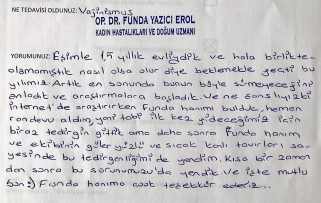 NE TEDAVİSİ OLDUNUZ: Vajinismus
OP. DR. FUNDA YAZICI EROL
KADIN HASTALIKLARI VE DOĞUM UZMANI
YORUMUNUZ: Eşimle 1,5 yıllık evliydik ve hala birlikte-
olamamıştık nasıl olsa olur diye beklemekle geçti bu
yılımız. Artık en sonunda bunun böyle sürmeyeceğini
anladık ve araştırmalara başladık. Ve ne şanslıyız ki
internet'de araştırırken Funda hanımı bulduk, hemen
randevu aldım, yani tabi ilk kez gideceğimiz için
biraz tedirgin gittik ama daha sonra Funda hanım
ve ekibinin güler yüzlü ve sıcak kanlı tavırları sa-
yesinde bu tedirginliğimi de yendim. Kısa bir zaman
dan sonra bu sorunumuzu'da yendik. Ve işte mutlu
son :) Funda hanıma çok teşekkür ederiz...